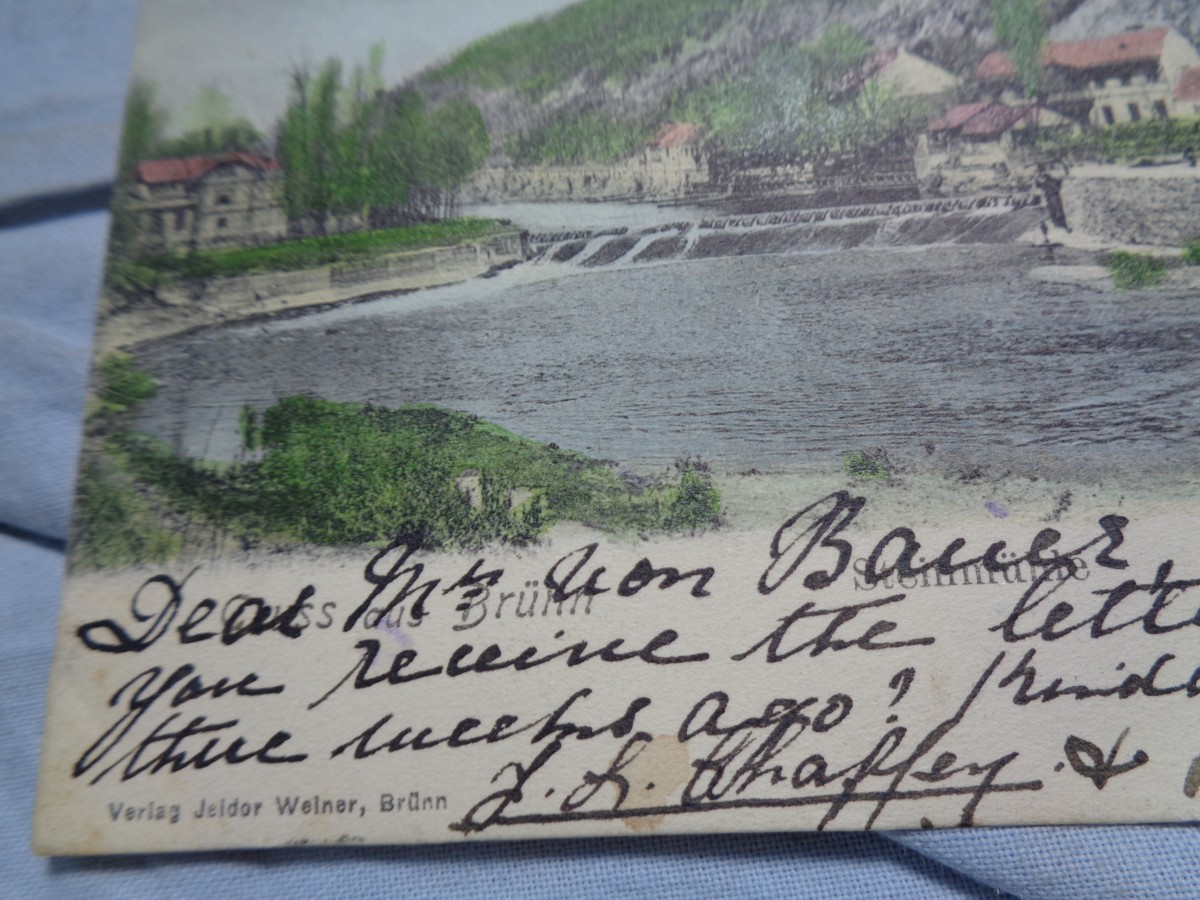 Steinmühle
Gruss aus Brünn
Dear Mr Von Bauer
you receive the lette
three weeks ago? Kind
Verlag Jeidor Weiner, Brünn